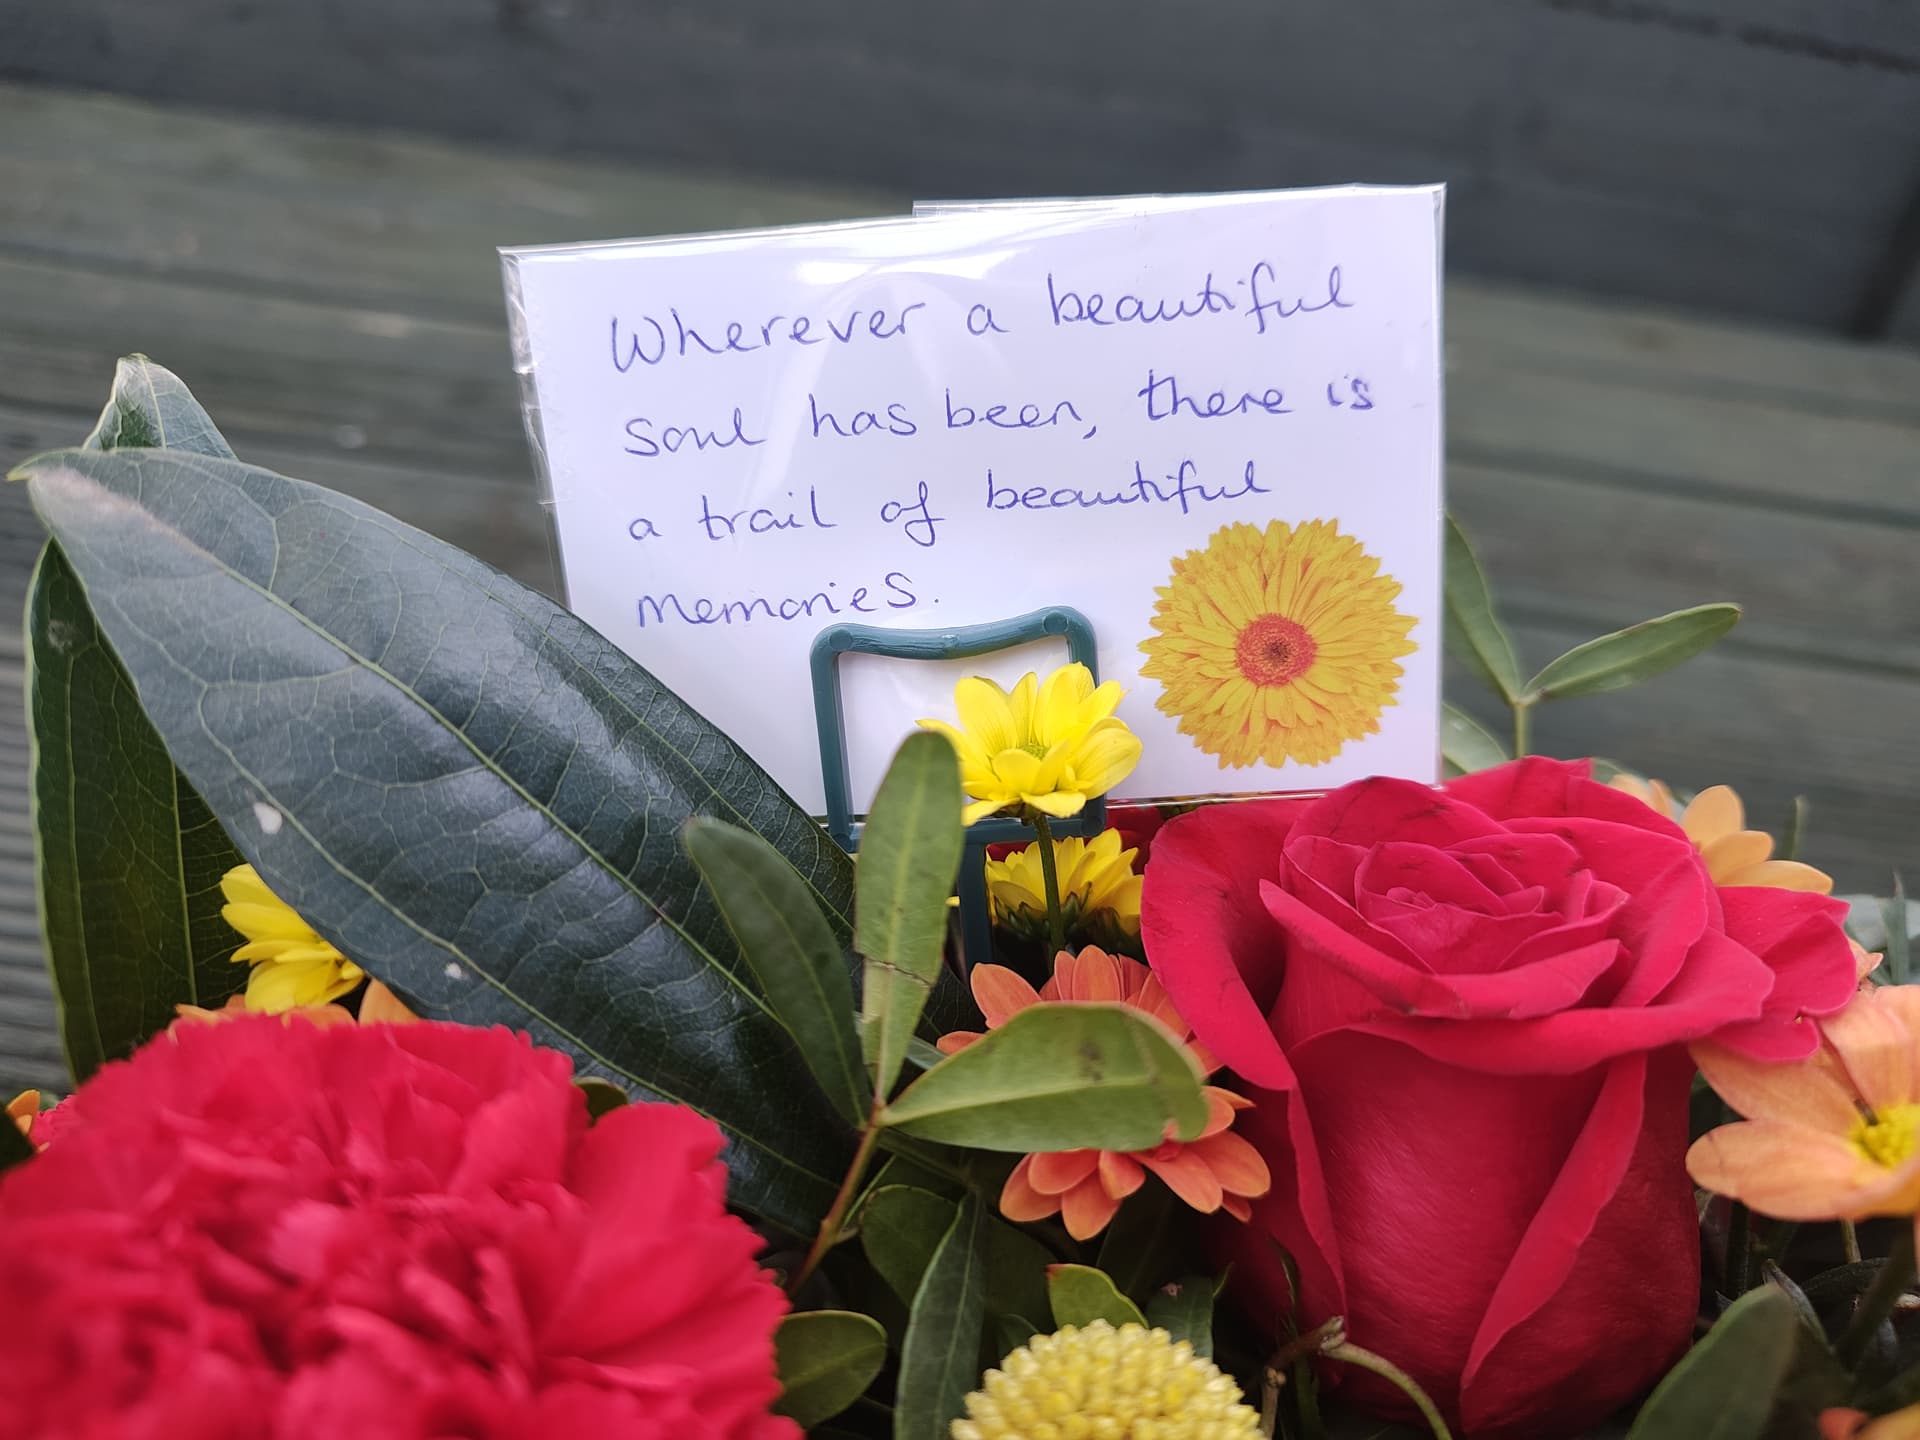 Wherever a beautiful
soul has been, there is
a trail of beautiful
memories.